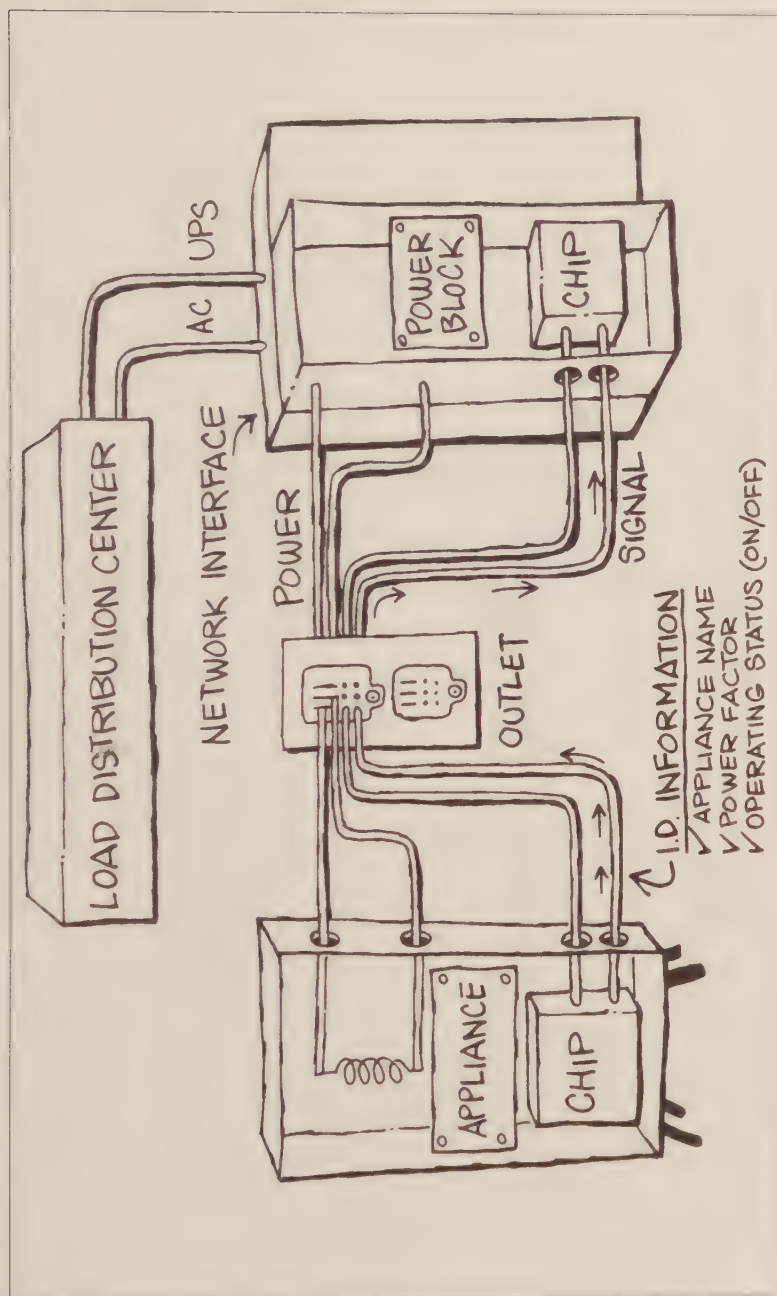 LOAD DISTRIBUTION CENTER
AC
UPS
NETWORK INTERFACE
POWER
POWER
BLOCK
CHIP
SIGNAL
OUTLET
APPLIANCE
CHIP
I.D. INFORMATION
✓ APPLIANCE NAME
✓ POWER FACTOR
✓ OPERATING STATUS (ON/OFF)